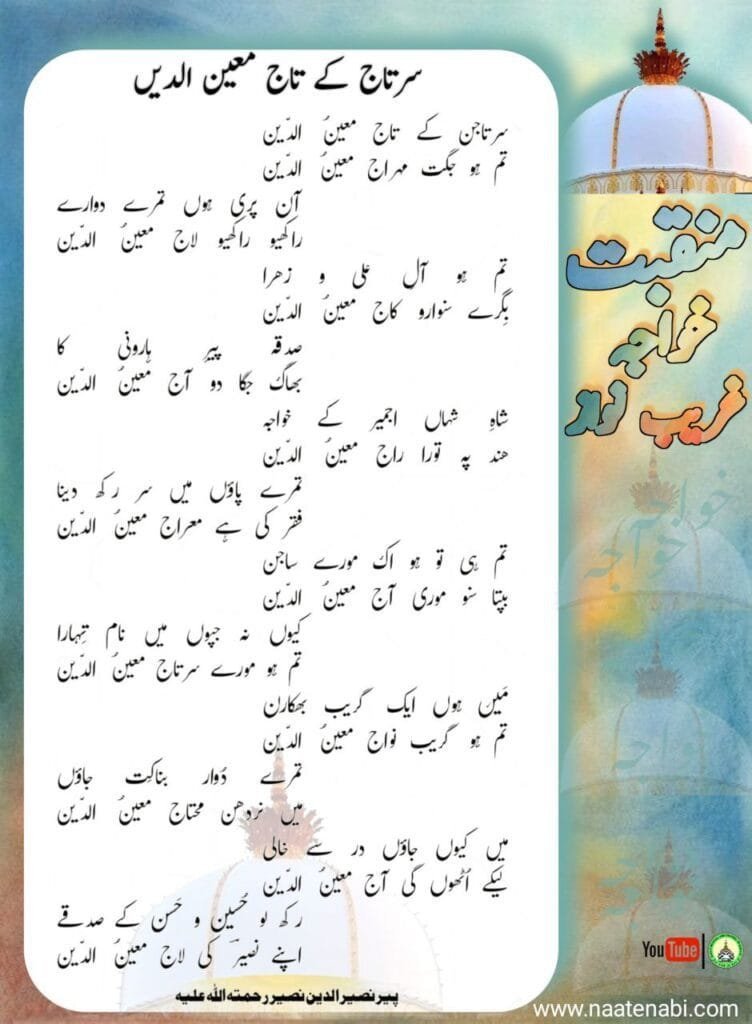 سرتاج کے تاج معین الدیں
سرتاجن کے تاج معینُ الدّین
تم ہو جگت مہراج معینُ الدّین
آن پری ہوں تمرے دوارے
راکھیو راکھیو لاج معینُ الدّین
تم ہو آلِ علی و زھرا
بِگرے سنوارو کاج معینُ الدّین
صدقہ پیرِ ہارونی کا
بھاگ جگا دو آج معینُ الدّین
شاہِ شہاں اجمیر کے خواجہ
ھند پہ تورا راج معینُ الدّین
تمرے پاؤں میں سر رکھ دینا
فقر کی ہے معراج معینُ الدّین
تم ہی تو ہو اک مورے ساجن
بپتا سنو موری آج معینُ الدّین
کیوں نہ جپوں میں نام تِہارا
تم ہو مورے سرتاج معینُ الدّین
مَیں ہوں ایک گریب بھکارن
تم ہو گریب نواج معینُ الدّین
تمرے دُوار بناکِت جاؤں
میں نردھن محتاج معینُ الدّین
میں کیوں جاؤں در سے خالی
لیکے اُٹھوں گی آج معینُ الدّین
رکھ لو حُسین و حَسن کے صدقے
اپنے نصیرؔ کی لاج معینُ الدّین
پیر نصیر الدین نصیر رحمتہ اللہ علیہ
منقبت
خواجہ
غریب نواز
خواجہ
خواجہ
خواجہ
YouTube
www.naatenabi.com